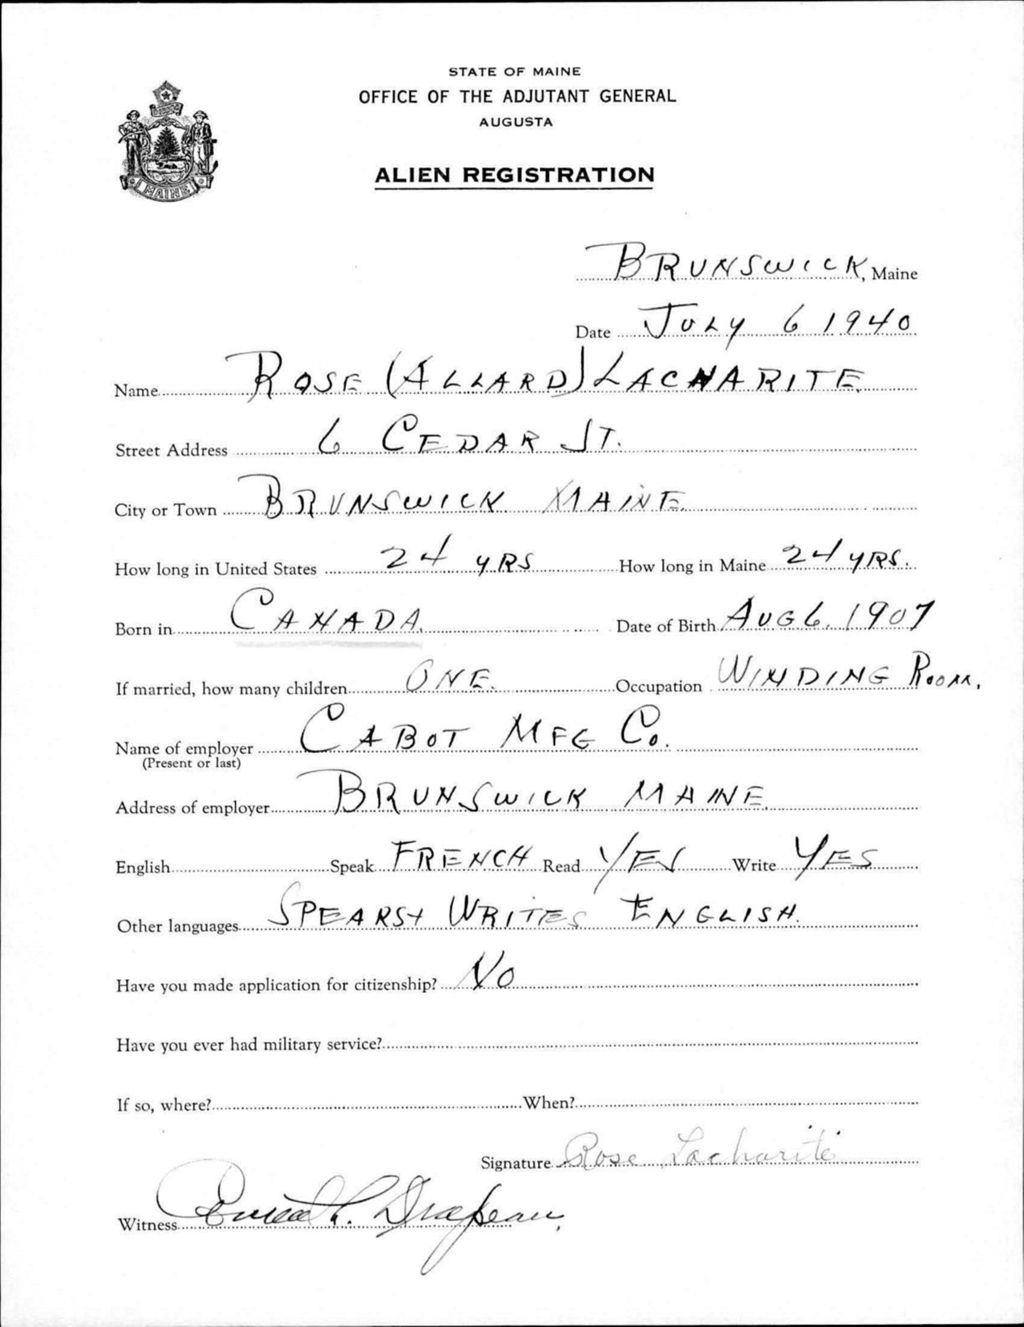 STATE OF MAINE
OFFICE OF THE ADJUTANT GENERAL
AUGUSTA
MAINE
ALIEN REGISTRATION
BRUNSWICK, Maine
Date JULY 6 1940
Name ROSE (ALLARD) LACHARITE
Street Address 6 CEDAR ST.
City or Town BRUNSWICK MAINE.
How long in United States 24 YRS How long in Maine 24 YRS.
Born in CANADA. Date of Birth AUG 6. 1907
If married, how many children ONE. Occupation WINDING ROOM.
Name of employer CABOT MFG Co.
(Present or last)
Address of employer BRUNSWICK MAINE.
English Speak FRENCH Read YES Write YES
Other languages SPEAKS + WRITES ENGLISH.
Have you made application for citizenship? NO
Have you ever had military service?
If so, where? When?
Signature Rose Lacharite
Witness L. Drapeau.